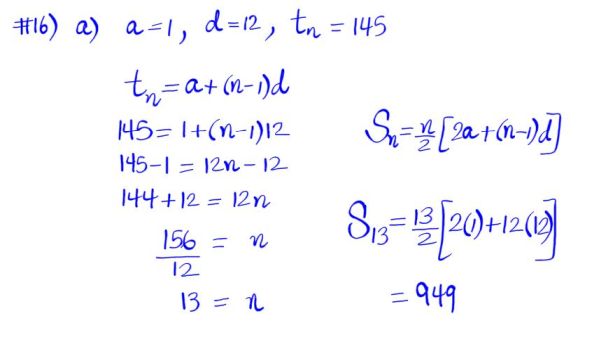 #16) a) a=1, d=12, tn = 145
tn = a+(n-1)d
145 = 1+(n-1)12
145-1 = 12n-12
144+12 = 12n
156/12 = n
13 = n
Sn = n/2 [2a+(n-1)d]
S13 = 13/2 [2(1)+12(12)]
= 949